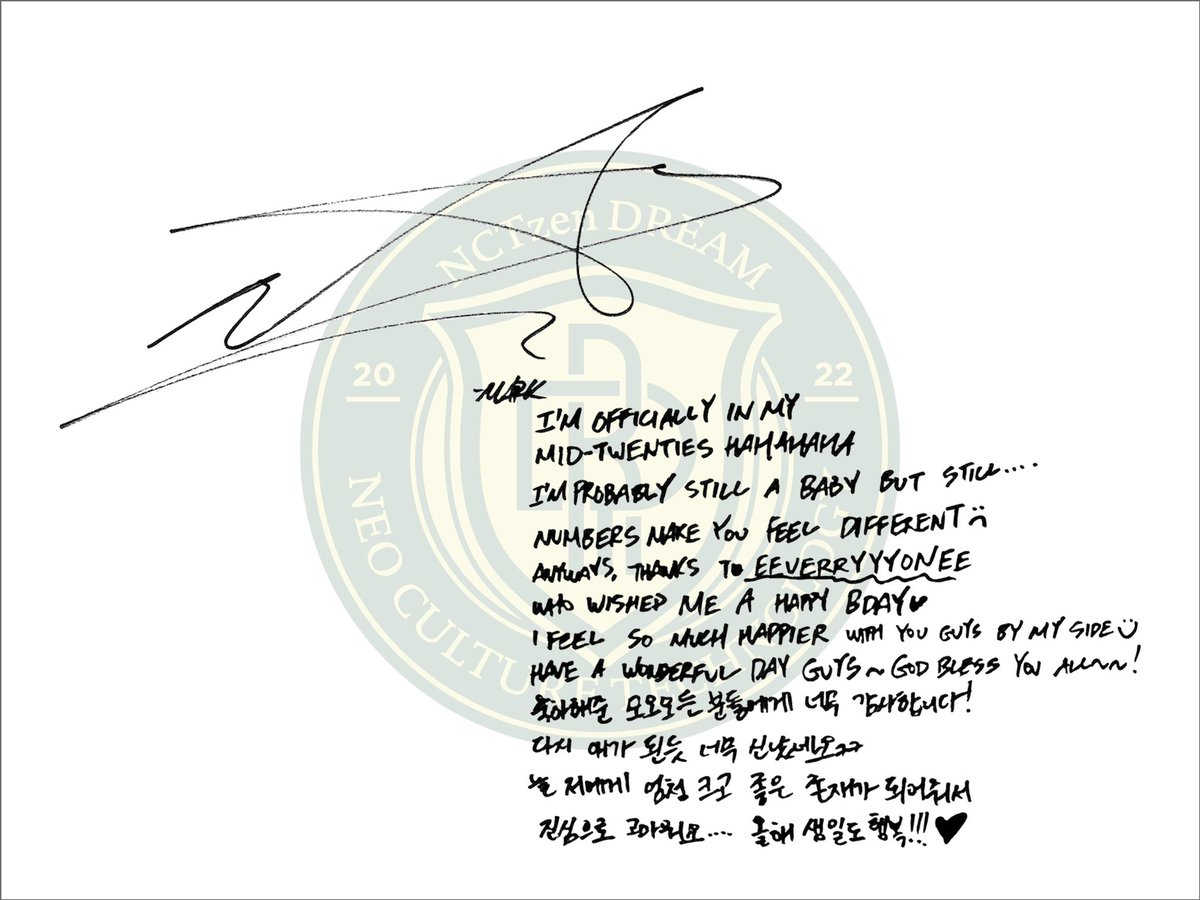 NCTzen DREAM
20 22
NEO CULTURE TECHNOLOGY
-MARK
I'M OFFICIALLY IN MY
MID-TWENTIES HAHAHAHA
I'M PROBABLY STILL A BABY BUT STILL....
NUMBERS MAKE YOU FEEL DIFFERENT :(
ANYWAYS, THANKS TO EEVERRYYYONEE
WHO WISHED ME A HAPPY BDAY♥
I FEEL SO MUCH HAPPIER WITH YOU GUYS BY MY SIDE :)
HAVE A WONDERFUL DAY GUYS~GOD BLESS YOU ALL~~!
축하해준 모오모든 분들에게 너무 감사합니다!
다시 애가 된듯 너무 신났네요ㅋㅋ
늘 저에게 엄청 크고 좋은 존재가 되어줘서
진심으로 고마워요.... 올해 생일도 행복!!! ♥